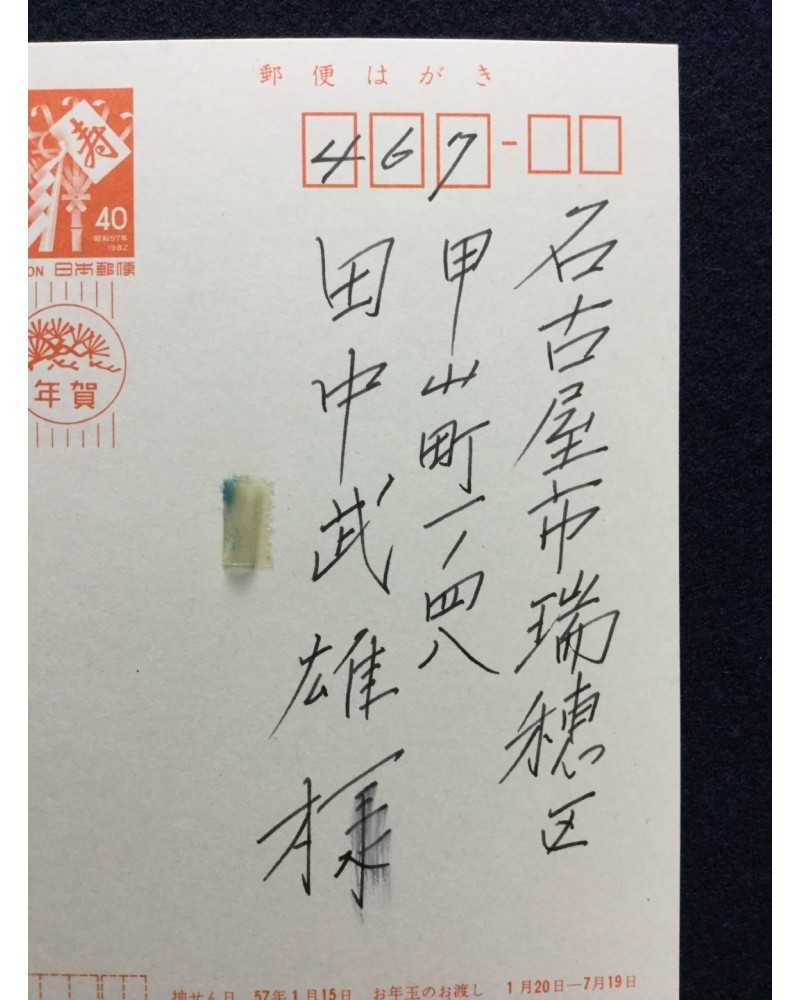 郵便はがき
467-
名古屋市瑞穂区
甲山町一ノ四八
田中武雄様
寿
40
昭和57年
1982
ON 日本郵便
年賀
抽せん日 57年1月15日 お年玉のお渡し 1月20日—7月19日